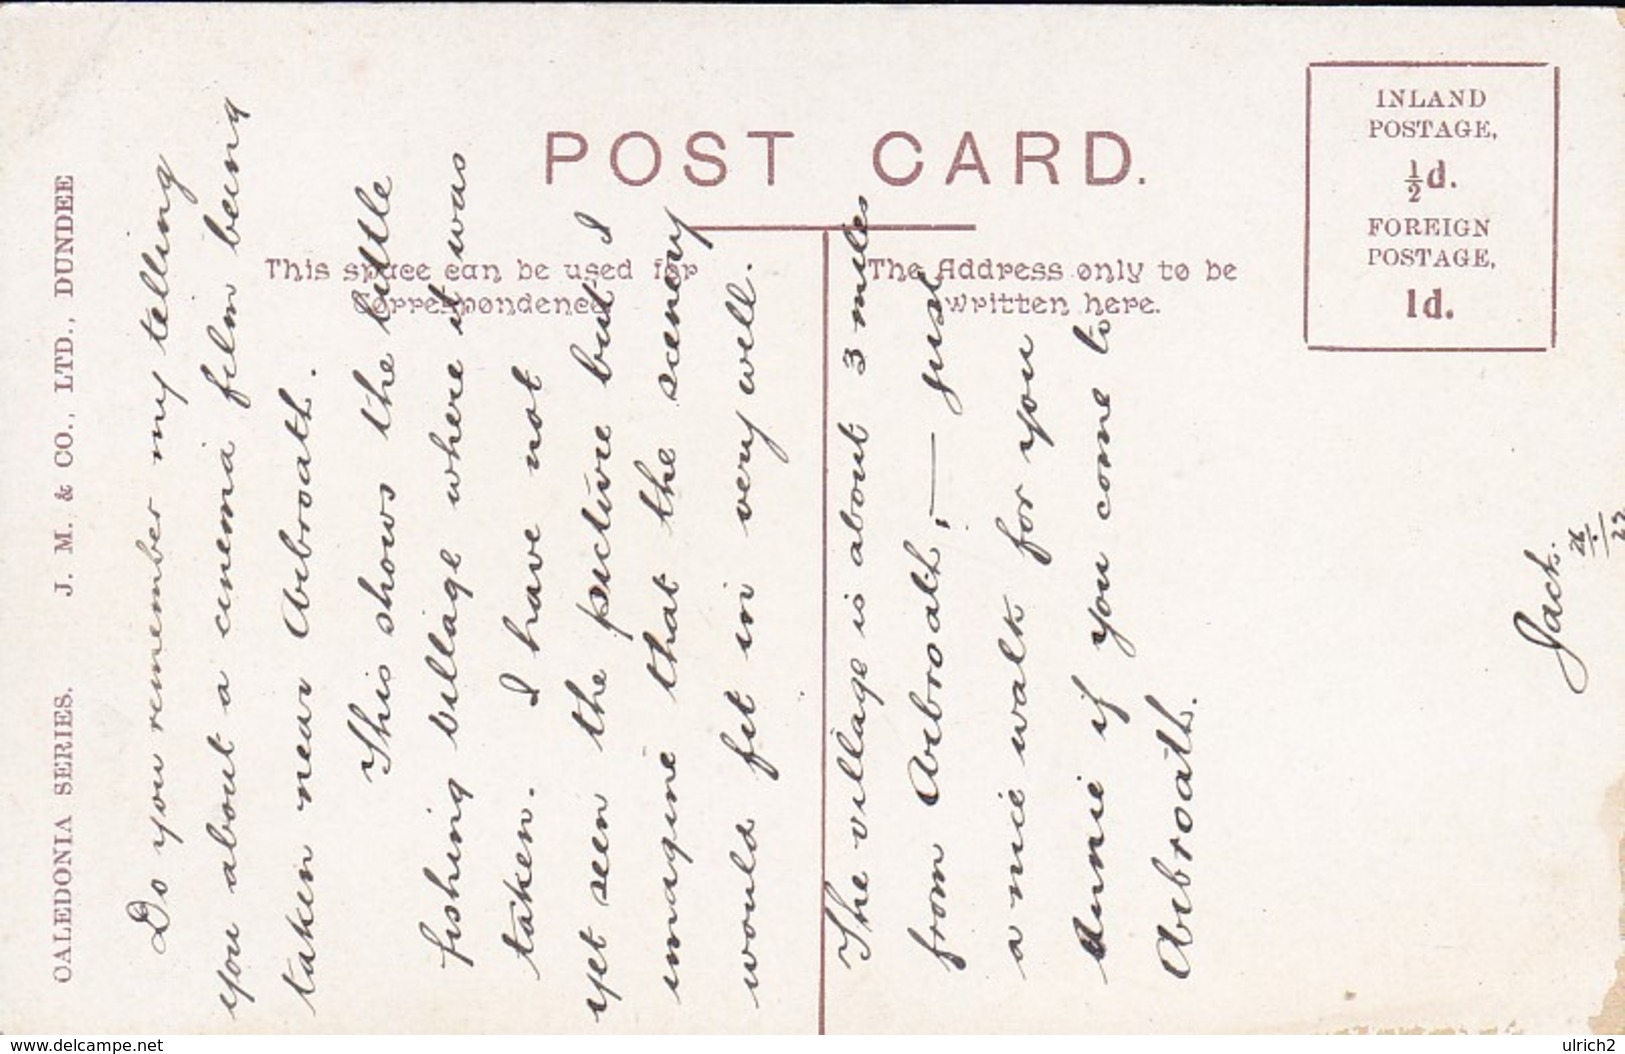 POST CARD.
This space can be used for
Correspondence.
The Address only to be
written here.
INLAND
POSTAGE,
½d.
FOREIGN
POSTAGE,
1d.
CALEDONIA SERIES. J. M. & CO., LTD., DUNDEE
Do you remember my telling
you about a cinema film being
taken near Arbroath.
This shows the little
fishing village where it was
taken. I have not
yet seen the picture but I
imagine that the scenery
would fit in very well.
The village is about 3 miles
from Arbroath, — just
a nice walk for you
Annie if you come to
Arbroath.
Jack.
26
www.delcampe.net
ulrich2